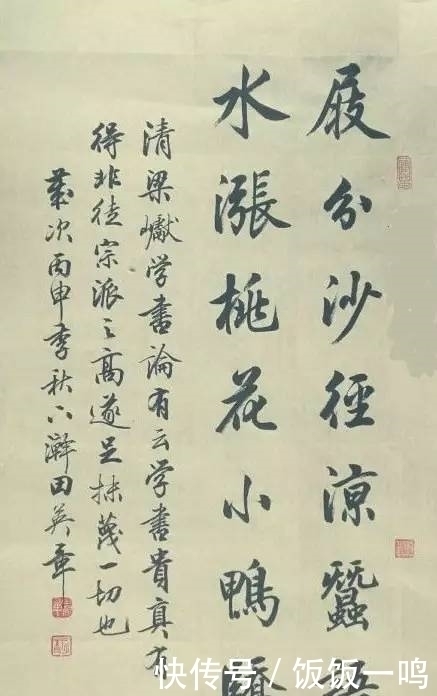 屐分沙徑涼
水漲桃花小鴨
清梁巘学書論有云学書貴真
得非徒宗派之高遂足抹蔑一切也
歲次丙申季秋下澣田英章
快传号/饭饭一鸣